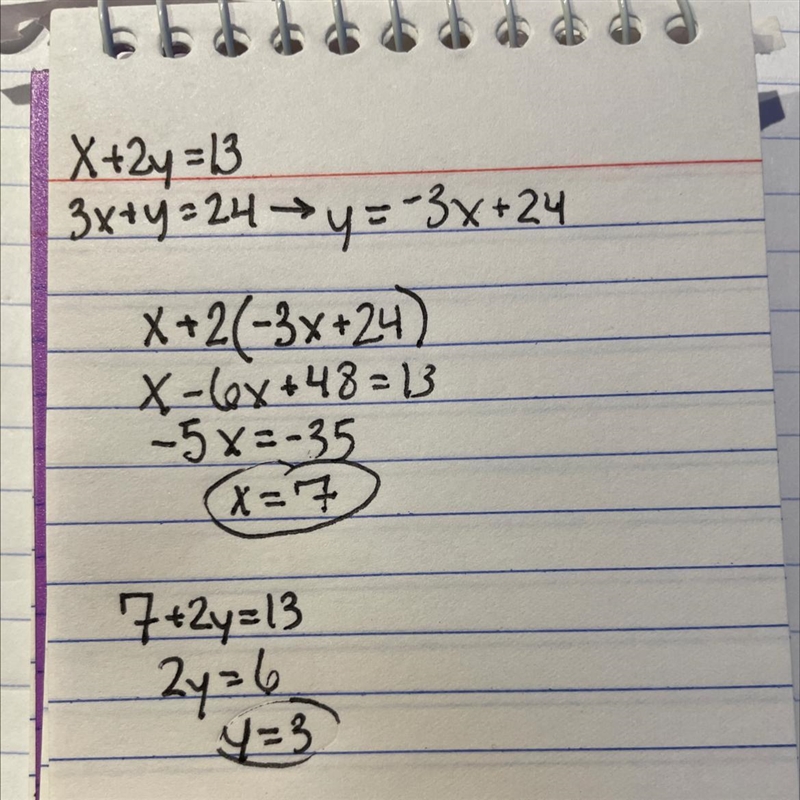 x+2y=13
3x+y=24→y=-3x+24
x+2(-3x+24)
x-6x+48=13
-5x=-35
x=7
7+2y=13
2y=6
y=3